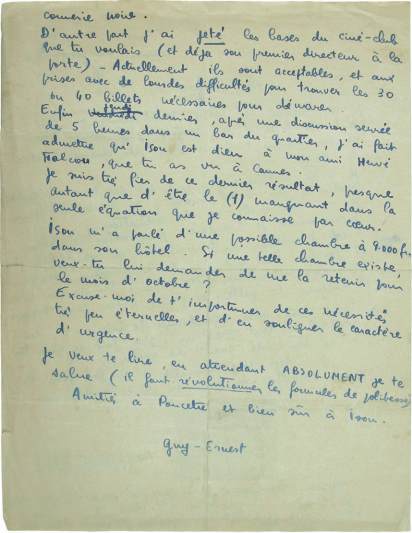 connerie noire.
D'autre part j'ai jeté les bases du ciné-club
que tu voulais (et déjà son premier directeur à la
porte) - Actuellement ils sont acceptables, et aux
prises avec de lourdes difficultés pour trouver les 30
ou 40 billets nécessaires pour démarrer.
Enfin jeudi dernier, après une discussion serrée
de 5 heures dans un bar du quartier, j'ai fait
admettre qu'Isou est dieu à mon ami Hervé
Falcou, que tu as vu à Cannes.
Je suis très fier de ce dernier résultat, presque
autant que d'être le (1) manquant dans la
seule équation que je connaisse par cœur.
Isou m'a parlé d'une possible chambre à 9.000 fr.
dans son hôtel. Si une telle chambre existe,
veux-tu lui demander de me la retenir pour
le mois d'octobre ?
Excuse-moi de t'importuner de ces nécessités
très peu éternelles, et d'en souligner le caractère
d'urgence.
Je veux te lire, en attendant ABSOLUMENT je te
salue (il faut révolutionner les formules de politesse)
Amitiés à Poucette et bien sûr à Isou.
Guy-Ernest